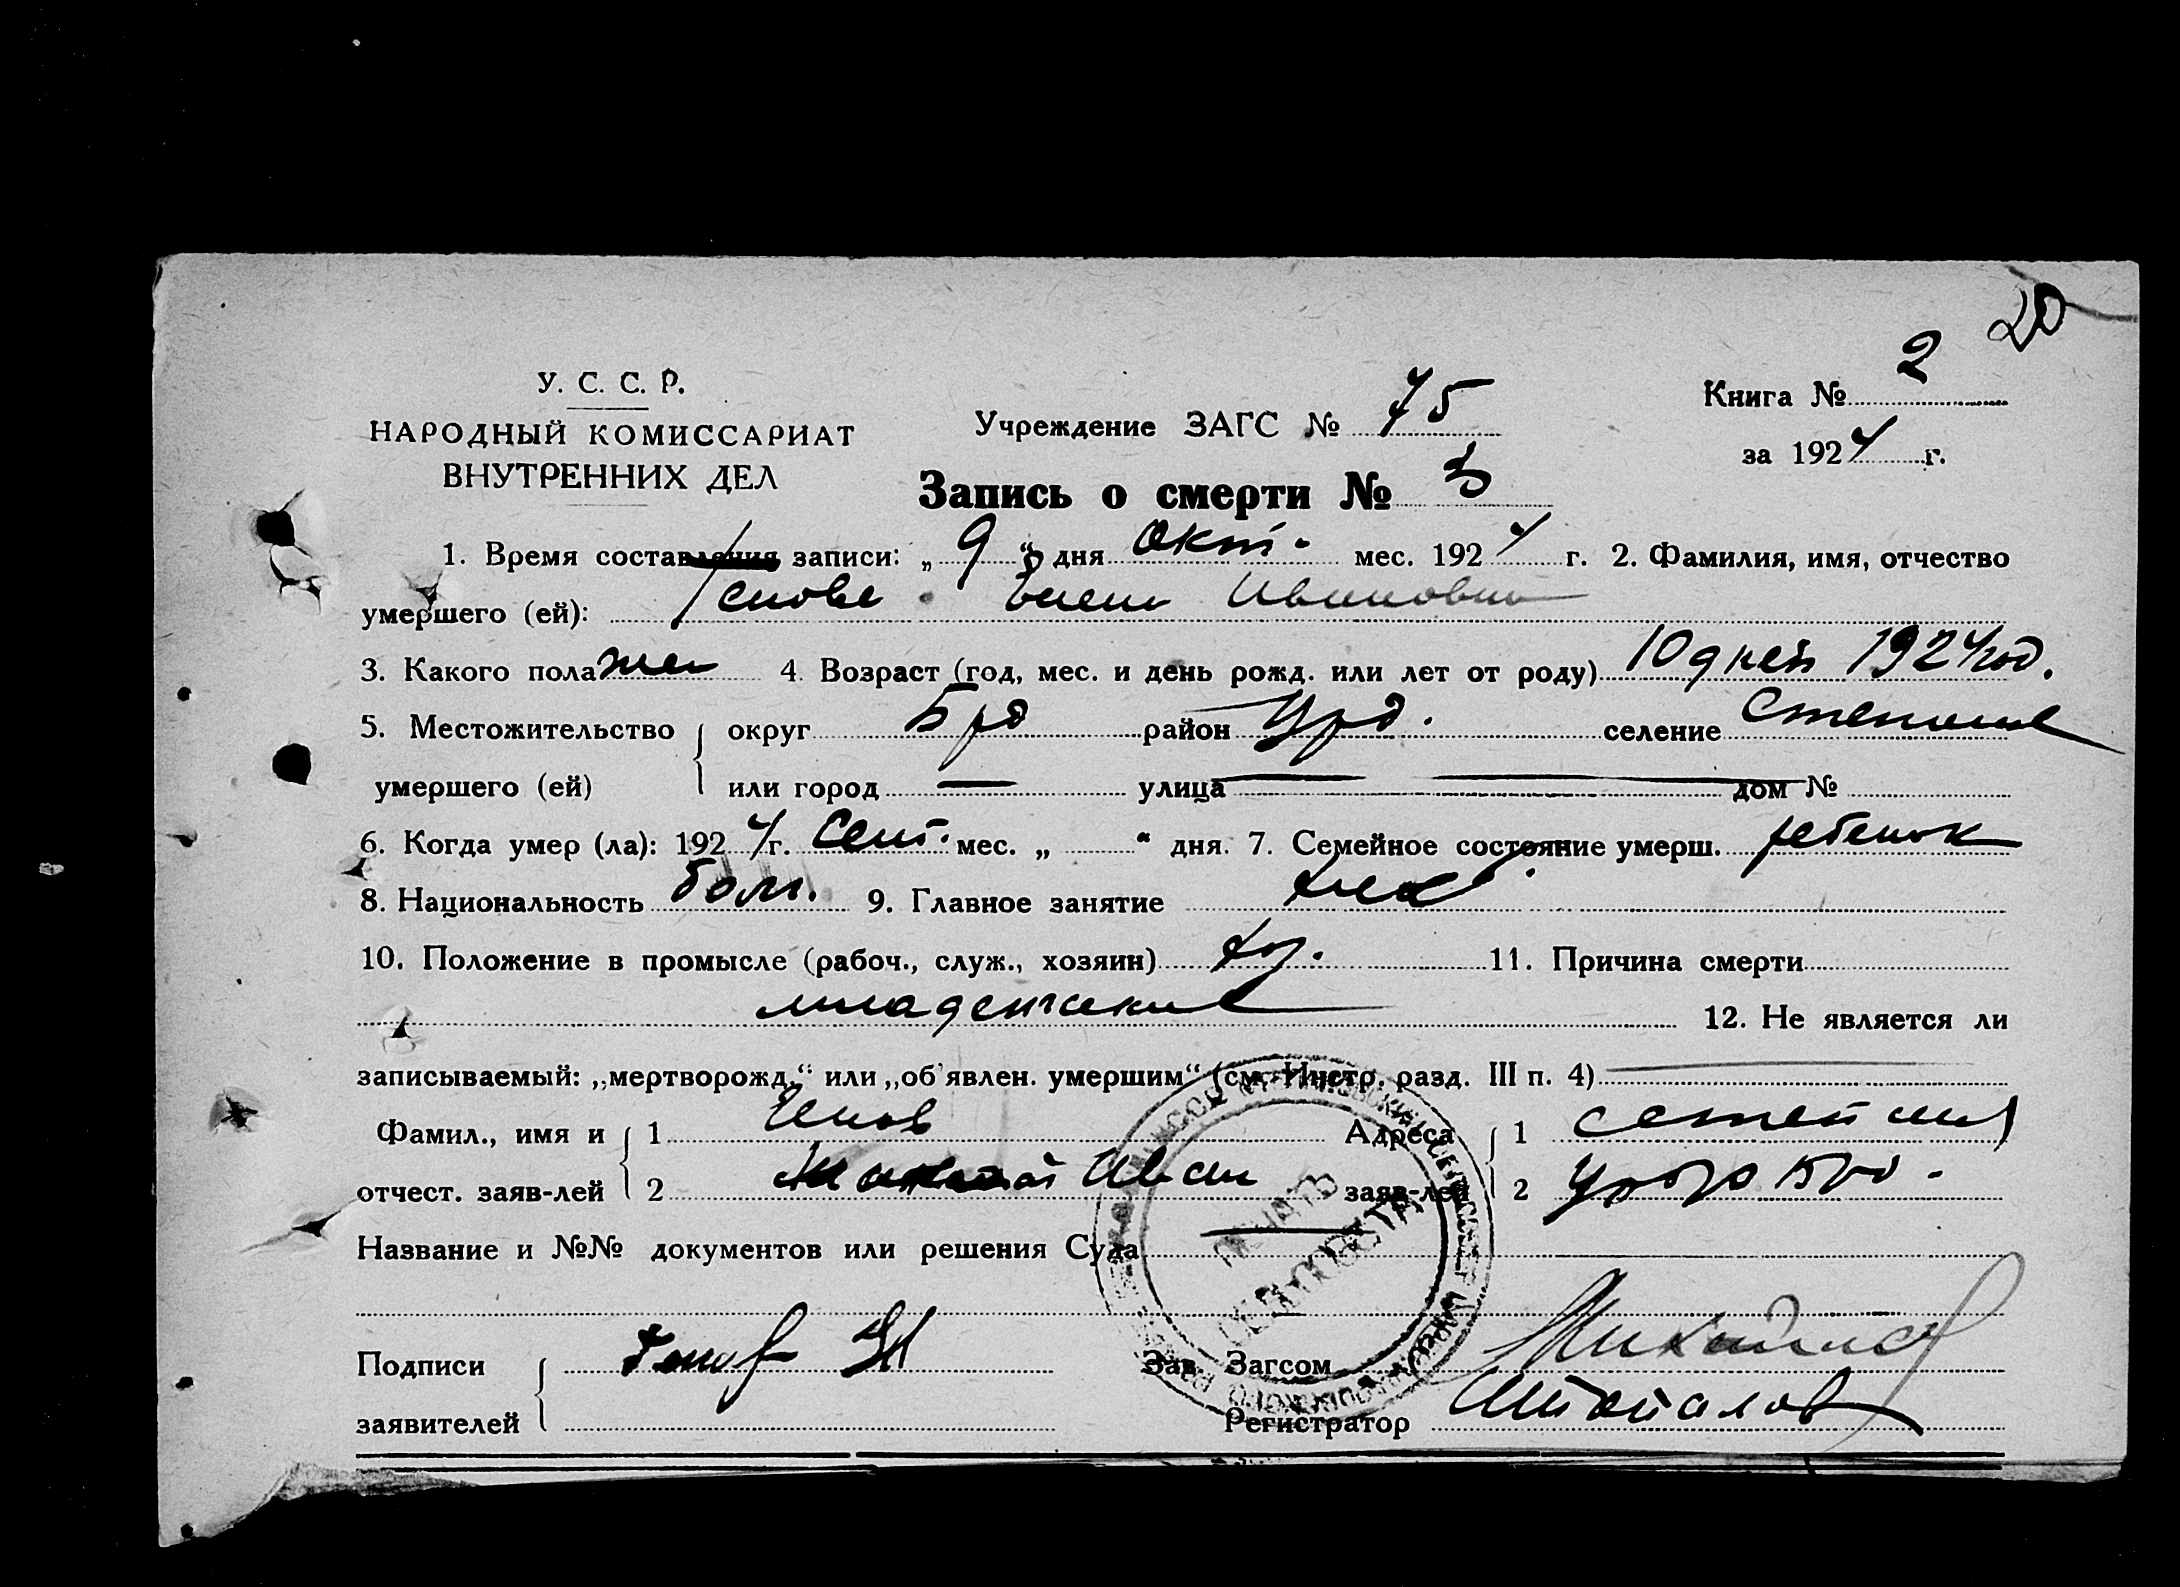 20
У. С. С. Р.
НАРОДНЫЙ КОМИССАРИАТ
ВНУТРЕННИХ ДЕЛ
Учреждение ЗАГС № 75
Книга № 2
за 1924 г.
Запись о смерти № 3
1. Время составления записи: „ 9 “ дня Окт. мес. 1924 г. 2. Фамилия, имя, отчество
умершего (ей): Ивановна
3. Какого пола жен 4. Возраст (год, мес. и день рожд. или лет от роду) 10 дней 1924 год.
5. Местожительство округ Брд район Црд. селение
умершего (ей) или город — улица — дом №
6. Когда умер (ла): 1924 г. Сент. мес. „ “ дня. 7. Семейное состояние умерш. ребенок
8. Национальность болг. 9. Главное занятие хлеб.
10. Положение в промысле (рабоч., служ., хозяин) хоз. 11. Причина смерти
младенческая
12. Не является ли
записываемый: „мертворожд.“ или „об'явлен. умершим“ (см. Инстр. разд. III п. 4) —
Фамил., имя и 1 Генов Адреса 1
отчест. заяв-лей 2 Иван заяв-лей 2
Название и №№ документов или решения Суда —
ПЕЧАТЬ
Подписи Генов Зав. Загсом Михайлов
заявителей Регистратор